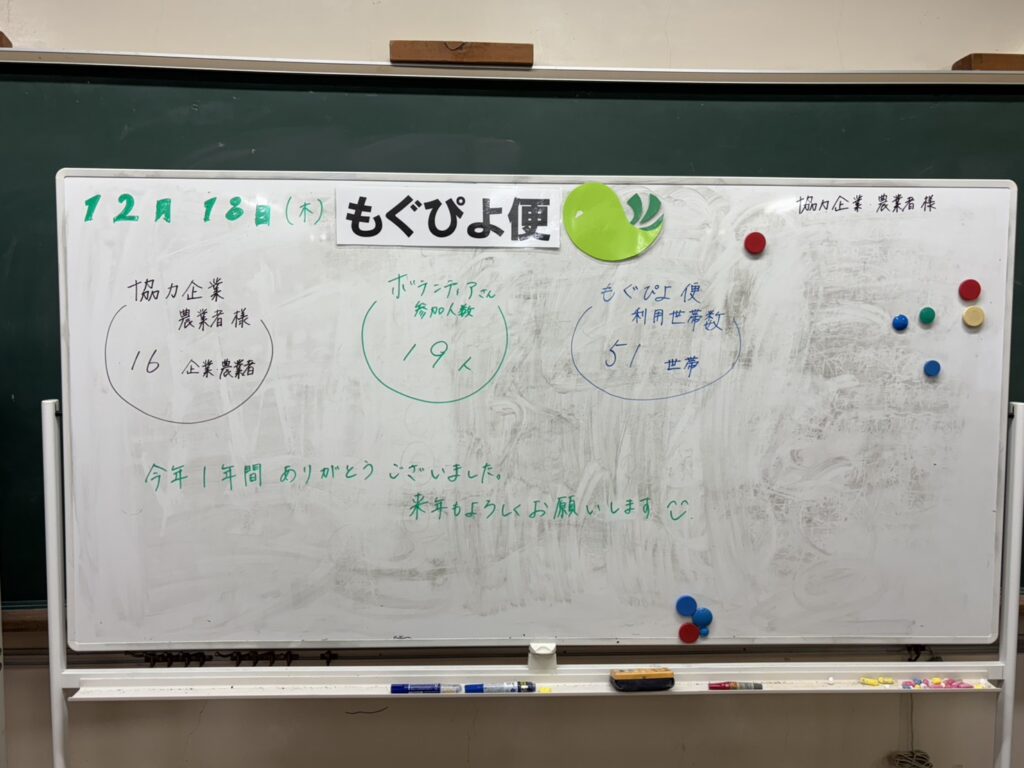 12月 18日(木) もぐぴよ便
協力企業 農業者様
協力企業
農業者様
16 企業農業者
ボランティアさん
参加人数
19人
もぐぴよ便
利用世帯数
51 世帯
今年1年間 ありがとう ございました。
来年もよろしくお願いします